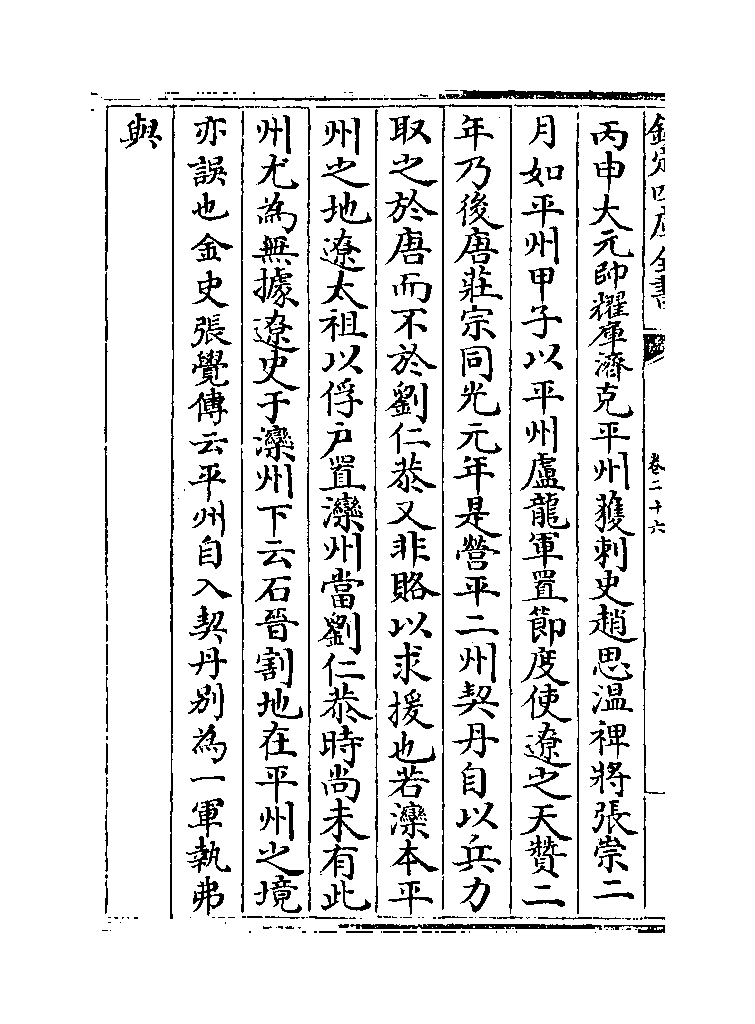 欽定四庫全書
卷二十六
丙申大元帥耀庫濟克平州獲刺史趙思溫裨將張崇二
月如平州甲子以平州盧龍軍置節度使遼之天贊二
年乃後唐莊宗同光元年是營平二州契丹自以兵力
取之於唐而不於劉仁恭又非賂以求援也若灤本平
州之地遼太祖以俘户置灤州當劉仁恭時尚未有此
州尤為無據遼史于灤州下云石晉割地在平州之境
亦誤也金史張覺傳云平州自入契丹别為一軍執弗
與